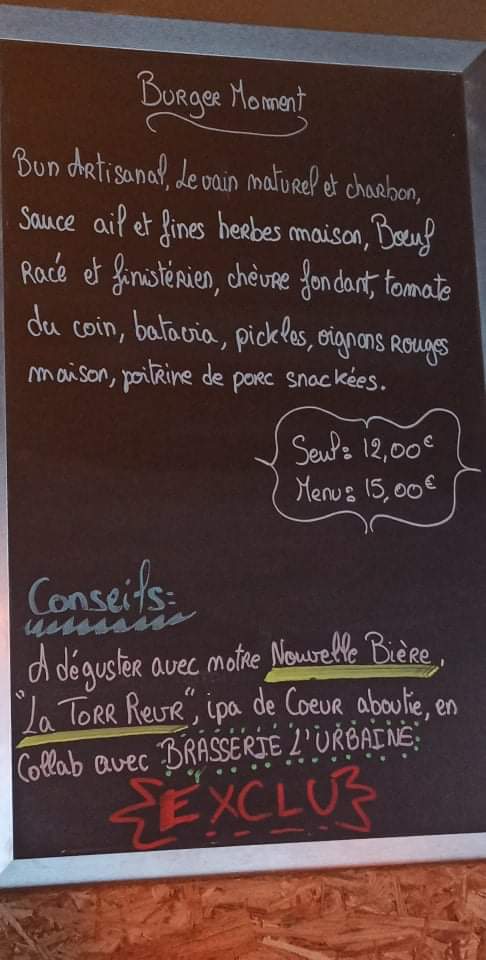 Burger Moment
Bun Artisanal, Levain naturel et charbon,
Sauce ail et fines herbes maison, Bœuf
Racé et finistérien, chèvre fondant, tomate
du coin, batavia, pickles, oignons Rouges
maison, poitrine de porc snackées.
Seul: 12,00€
Menu: 15,00€
Conseils:
A déguster avec notre Nouvelle Bière,
"La Torr Reur", ipa de Coeur aboutie, en
Collab avec BRASSERIE L'URBAINE.
EXCLU